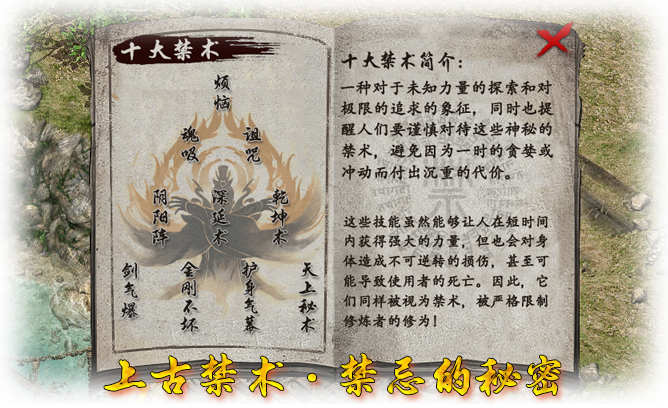 十大禁术
烦恼
魂吸
诅咒
阴阳阵
深延术
乾坤术
剑气爆
金刚不坏
护身气幕
天上秘术
十大禁术简介：
一种对于未知力量的探索和对
极限的追求的象征，同时也提
醒人们要谨慎对待这些神秘的
禁术，避免因为一时的贪婪或
冲动而付出沉重的代价。
这些技能虽然能够让人在短时间
内获得强大的力量，但也会对身
体造成不可逆转的损伤，甚至可
能导致使用者的死亡。因此，它
们同样被视为禁术，被严格限制
修炼者的修为！
上古禁术·禁忌的秘密